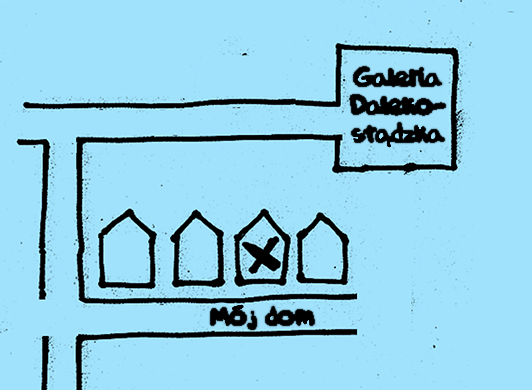 Galeria
Daleko-
stądzka
Mój dom